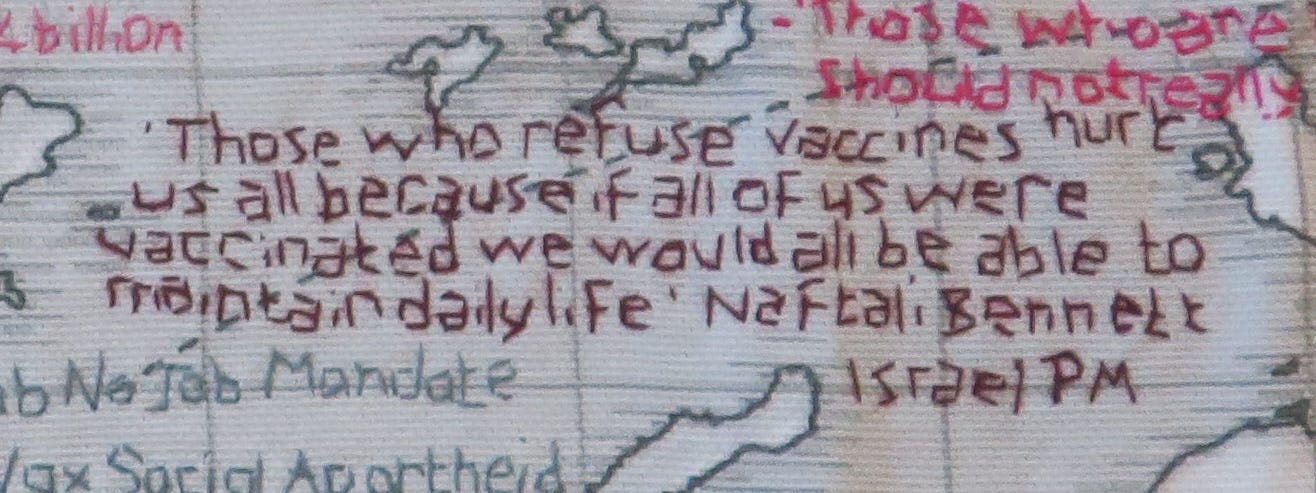 billion
- 'Those who are
should not really
'Those who refuse vaccines hurt
us all because if all of us were
vaccinated we would all be able to
maintain daily life' Naftali Bennett
Israel PM
No Jab Mandate
Social Apartheid